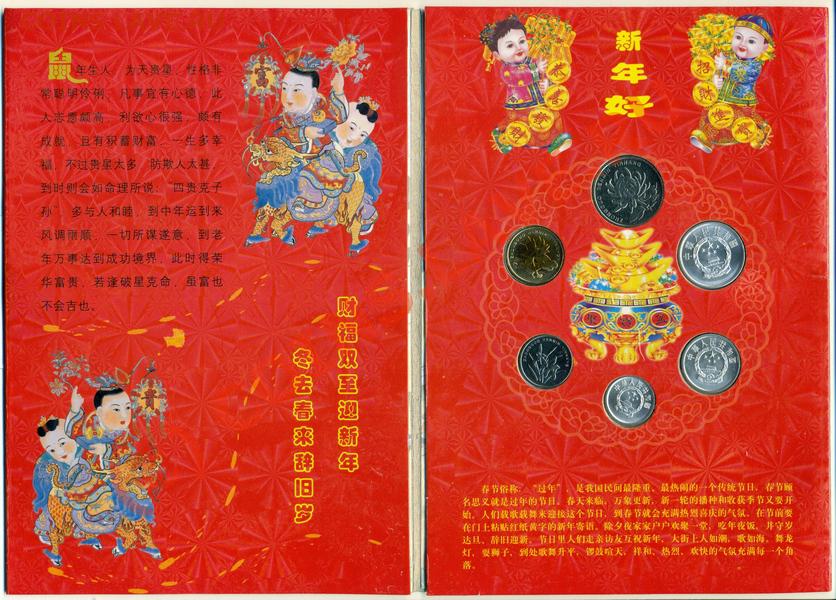 鼠年生人，为天贵星，性格非
常聪明伶俐，凡事宜有心德，此
人志虑颇高，利欲心很强，颇有
成就，且有积蓄财富，一生多幸
福，不过贵星太多，防欺人太甚，
到时则会如命理所说：“四贵克子
孙”，多与人和睦，到中年运到来
风调雨顺，一切所谋遂意，到老
年万事达到成功境界，此时得荣
华富贵，若逢破星克命，虽富也
不会吉也。
财福双至迎新年
冬去春来辞旧岁
新年好
招财进宝
中华人民共和国
中华人民共和国
中华人民共和国
春节俗称：“过年”，是我国民间最隆重、最热闹的一个传统节日，春节顾
名思义就是过年的节日。春天来临，万象更新，新一轮的播种和收获季节又要开
始。人们载歌载舞来迎接这个节日，到春节就会充满热烈喜庆的气氛。在节前要
在门上粘贴红纸黄字的新年寄语，除夕夜家家户户欢聚一堂，吃年夜饭，并守岁
达旦，辞旧迎新，节日里人们走亲访友互祝新年，大街上人如潮，歌如海，舞龙
灯，耍狮子，到处歌舞升平，锣鼓喧天，祥和、热烈、欢快的气氛充满每一个角
落。